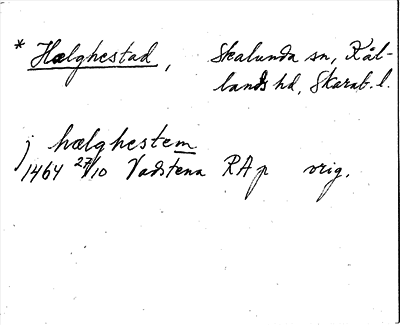 * Hælghestad, Skalunda sn, Kål-
lands hd, Skarab. l.
j hælghestem
1464 27/10 Vadstena RAp orig.